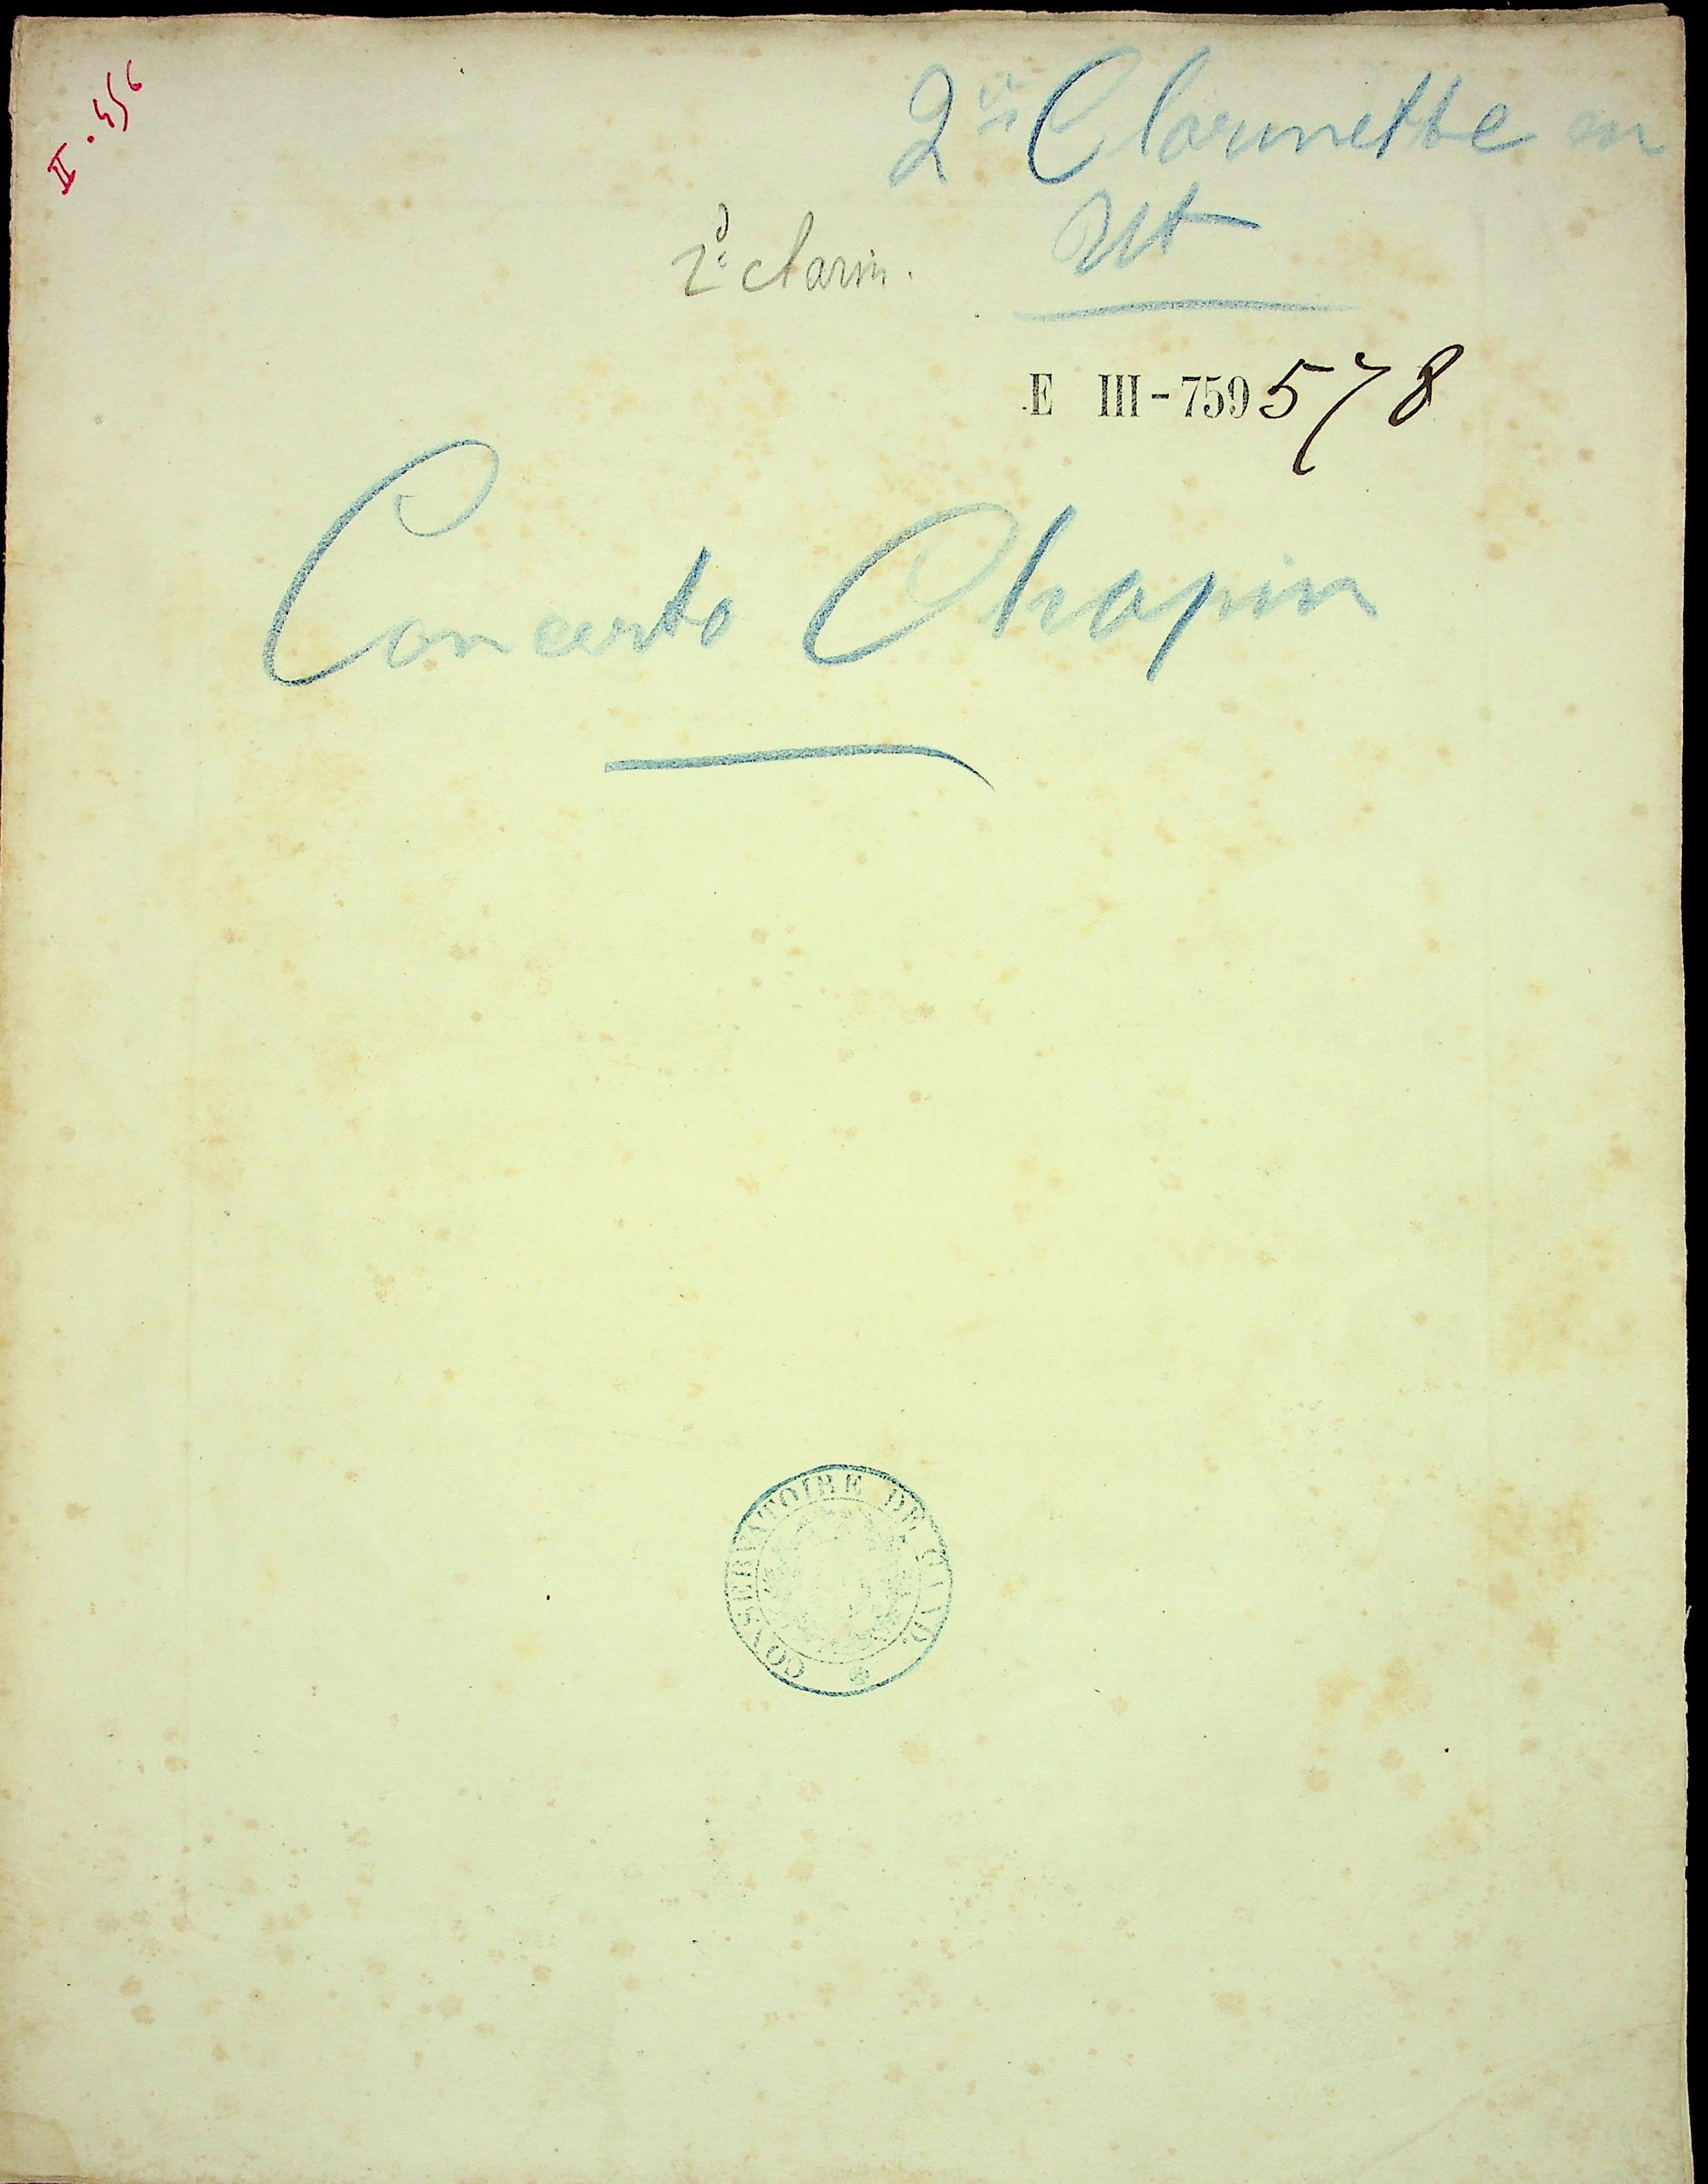 II. 456
2e Clarinette en
Ut
2d clarin.
E III-759 578
Concerto Chopin
CONSERVATOIRE DE GAND